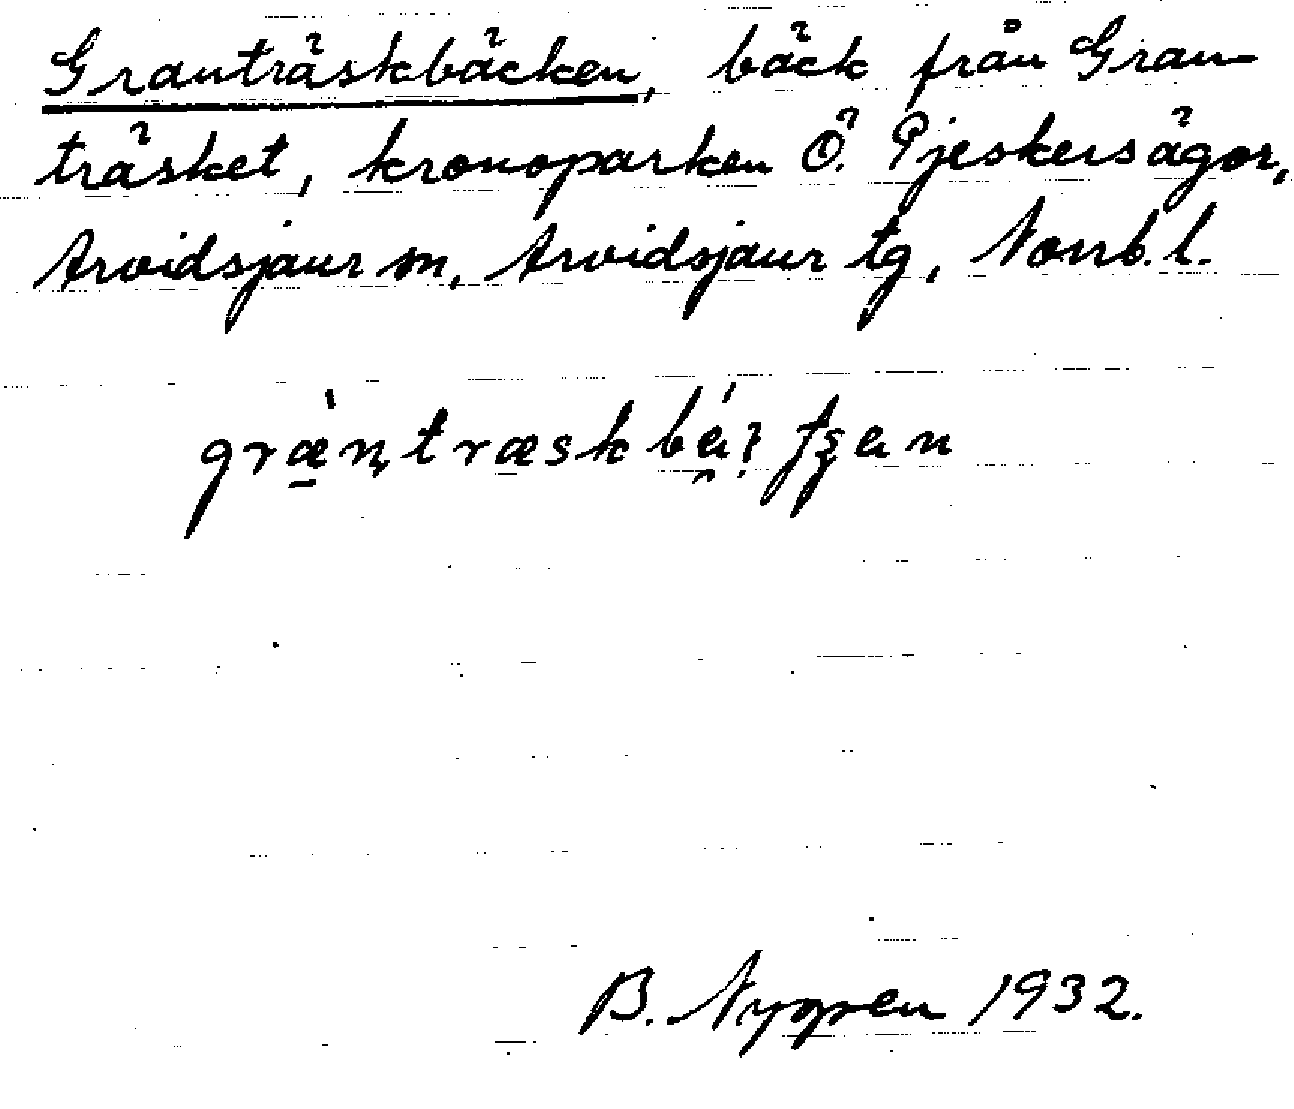 Granträskbäcken, bäck från Gran-
träsket, kronoparken Ö. Pjeskersägor,
Arvidsjaur sn, Arvidsjaur tg, Norrb. l.
B. Nygren 1932.